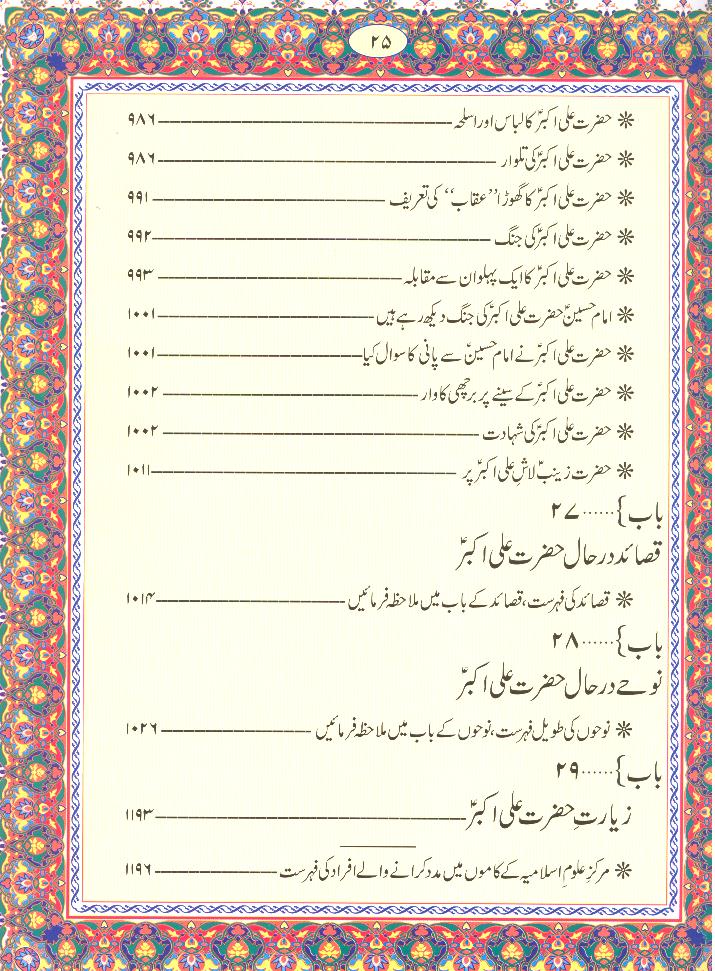 ۲۵
❊ حضرت علی اکبرؑ کا لباس اور اسلحہ ۹۸۶
❊ حضرت علی اکبرؑ کی تلوار ۹۸۶
❊ حضرت علی اکبرؑ کا گھوڑا ’’عقاب‘‘ کی تعریف ۹۹۱
❊ حضرت علی اکبرؑ کی جنگ ۹۹۲
❊ حضرت علی اکبرؑ کا ایک پہلوان سے مقابلہ ۹۹۳
❊ امام حسینؑ حضرت علی اکبرؑ کی جنگ دیکھ رہے ہیں ۱۰۰۱
❊ حضرت علی اکبرؑ نے امام حسینؑ سے پانی کا سوال کیا ۱۰۰۱
❊ حضرت علی اکبرؑ کے سینے پر برچھی کا وار ۱۰۰۲
❊ حضرت علی اکبرؑ کی شہادت ۱۰۰۲
❊ حضرت زینبؑ لاشِ علی اکبرؑ پر ۱۰۱۱
باب} ...... ۲۷
قصائد در حال حضرت علی اکبرؑ
❊ قصائد کی فہرست، قصائد کے باب میں ملاحظہ فرمائیں ۱۰۱۴
باب} ...... ۲۸
نوحے در حال حضرت علی اکبرؑ
❊ نوحوں کی طویل فہرست، نوحوں کے باب میں ملاحظہ فرمائیں ۱۰۲۶
باب} ...... ۲۹
زیارتِ حضرت علی اکبرؑ ۱۱۹۳
❊ مرکزِ علومِ اسلامیہ کے کاموں میں مدد کرانے والے افراد کی فہرست ۱۱۹۶